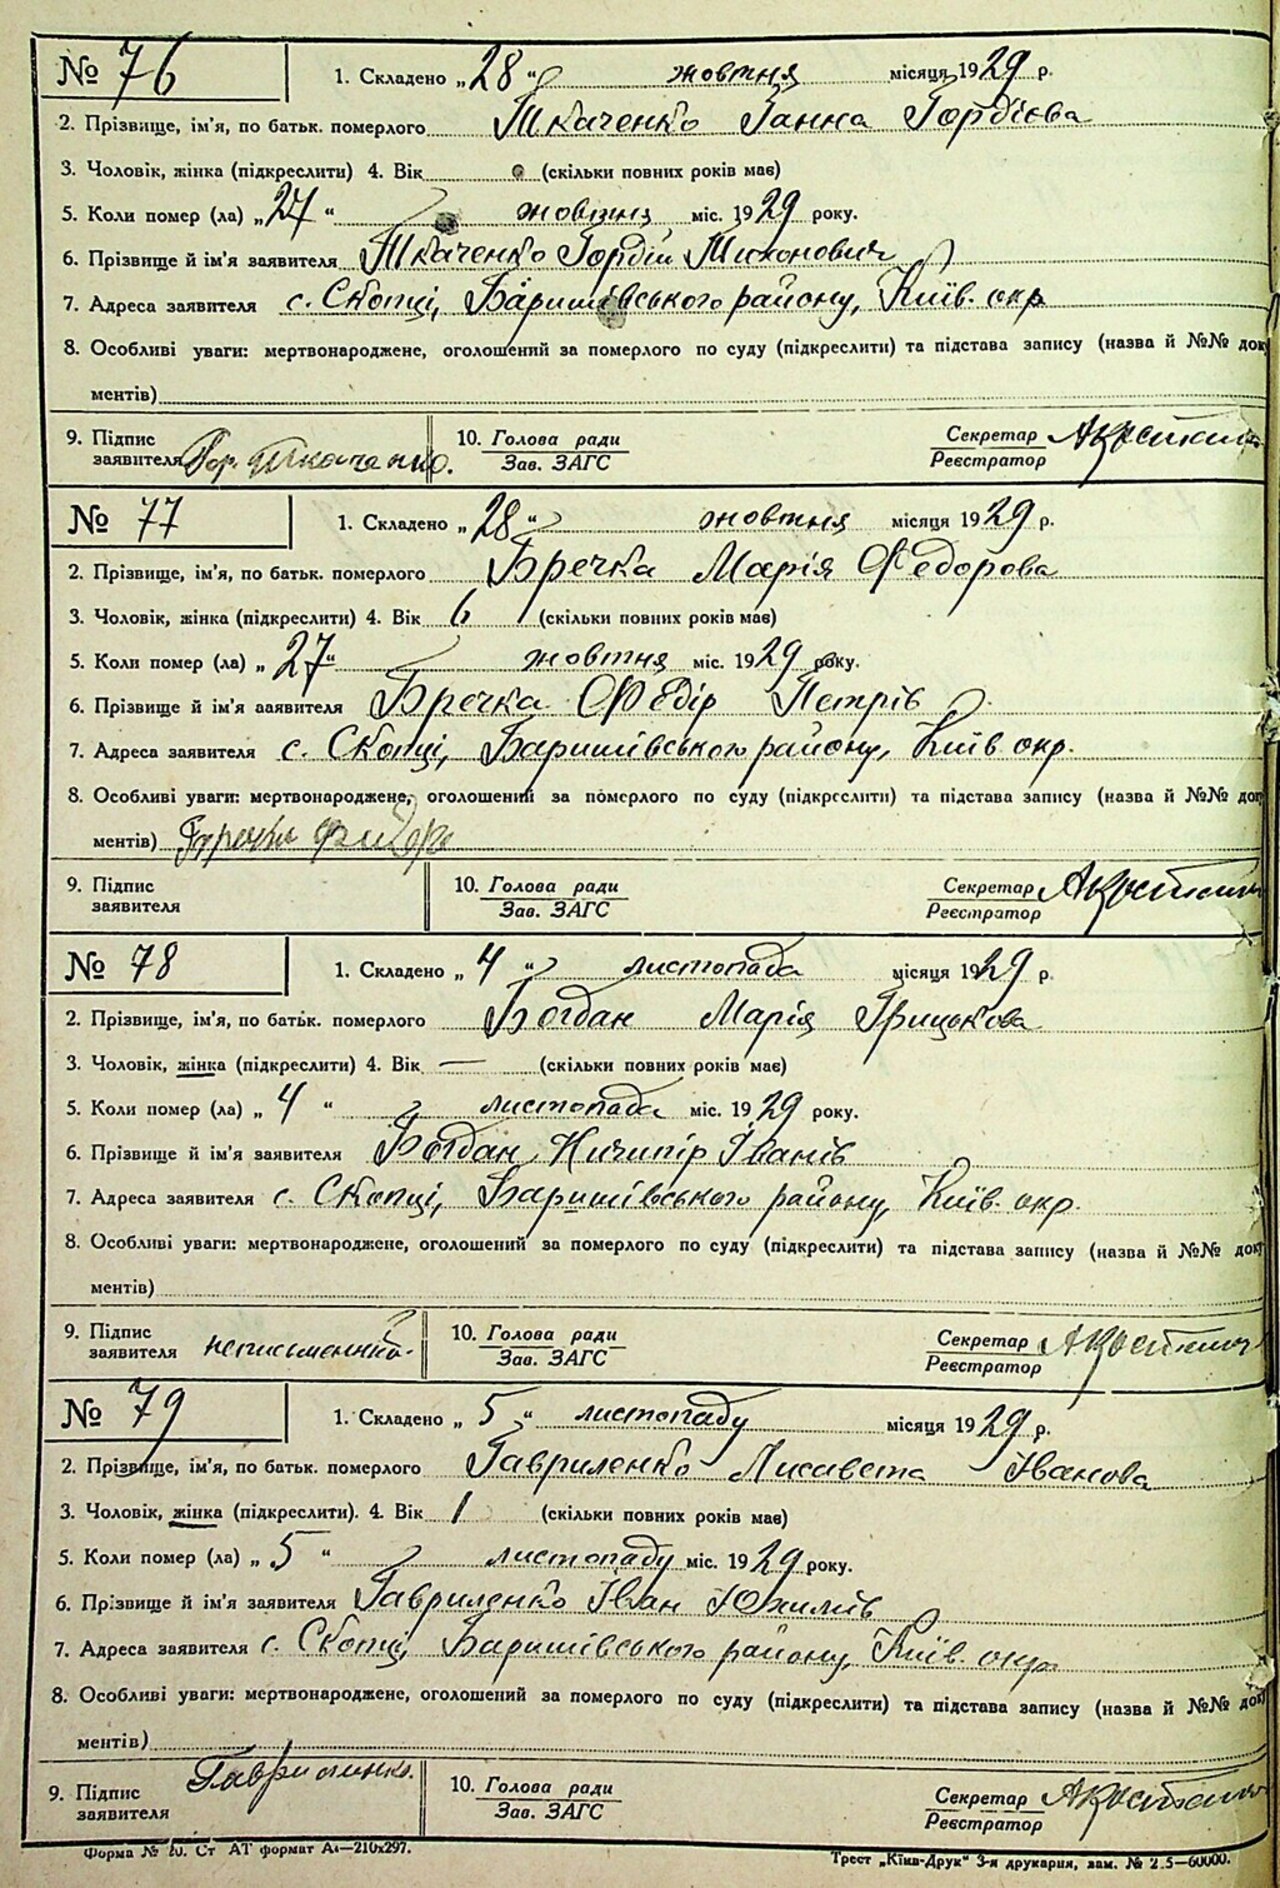 № 76 1. Складено „28“ жовтня місяця 1929 р.
2. Прізвище, ім'я, по батьк. померлого Ткаченко Ганна Гордієва
3. Чоловік, жінка (підкреслити) 4. Вік (скільки повних років має)
5. Коли помер (ла) „27“ жовтня міс. 1929 року.
6. Прізвище й ім'я заявителя Ткаченко Гордій Тихонович
7. Адреса заявителя с. Скопці, Баришівського району, Київ. окр
8. Особливі уваги: мертвонароджене, оголошений за померлого по суду (підкреслити) та підстава запису (назва й №№ доку
ментів)
9. Підпис заявителя Гор. Ткаченко. 10. Голова ради Зав. ЗАГС Секретар Реєстратор
№ 77 1. Складено „28“ жовтня місяця 1929 р.
2. Прізвище, ім'я, по батьк. померлого Бречка Марія Федорова
3. Чоловік, жінка (підкреслити) 4. Вік 6 (скільки повних років має)
5. Коли помер (ла) „27“ жовтня міс. 1929 року.
6. Прізвище й ім'я заявителя Бречка Федір Петрів
7. Адреса заявителя с. Скопці, Баришівського району, Київ. окр.
8. Особливі уваги: мертвонароджене, оголошений за померлого по суду (підкреслити) та підстава запису (назва й №№ доку
ментів)
9. Підпис заявителя 10. Голова ради Зав. ЗАГС Секретар Реєстратор
№ 78 1. Складено „4“ листопада місяця 1929 р.
2. Прізвище, ім'я, по батьк. померлого Богдан Марія Грицькова
3. Чоловік, жінка (підкреслити) 4. Вік — (скільки повних років має)
5. Коли помер (ла) „4“ листопада міс. 1929 року.
6. Прізвище й ім'я заявителя Богдан Ничипір Іванів
7. Адреса заявителя с. Скопці, Баришівського району, Київ. окр.
8. Особливі уваги: мертвонароджене, оголошений за померлого по суду (підкреслити) та підстава запису (назва й №№ доку
ментів)
9. Підпис заявителя неписьменний. 10. Голова ради Зав. ЗАГС Секретар Реєстратор
№ 79 1. Складено „5“ листопаду місяця 1929 р.
2. Прізвище, ім'я, по батьк. померлого Гавриленко Лисавета Іванова
3. Чоловік, жінка (підкреслити). 4. Вік 1 (скільки повних років має)
5. Коли помер (ла) „5“ листопаду міс. 1929 року.
6. Прізвище й ім'я заявителя Гавриленко Іван Юхимів
7. Адреса заявителя с. Скопці, Баришівського району, Київ. окр.
8. Особливі уваги: мертвонароджене, оголошений за померлого по суду (підкреслити) та підстава запису (назва й №№ доку
ментів)
9. Підпис заявителя Гавриленко. 10. Голова ради Зав. ЗАГС Секретар Реєстратор
Форма № 20. Ст АТ формат А4—210x297. Трест „Київ-Друк“ 3-я друкарня, зам. № 2.5—60000.